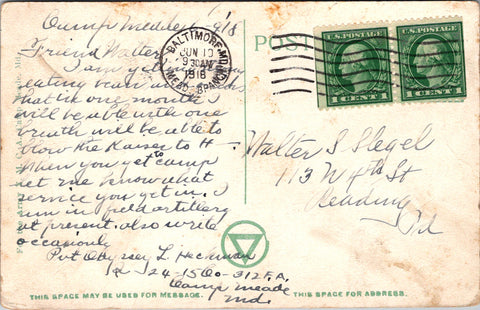 Camp Meade 6/ 1918
Friend Walter
I am yet
eating beans
that in one month I
will be able with one
breath will be able to
blow the Kaiser to H—
When you get to camp
let me know what
service you get in. I
am in field artillery
at present. also write
occasionly
Pvt Ulysses L. Heckman
J24-15Co-312 F.A.
Camp Meade
Md.
THIS SPACE MAY BE USED FOR MESSAGE.
POST
BALTIMORE, MD.
JUN 10
930AM
1918
MEADE BRANCH
U.S. POSTAGE
1 CENT 1
U.S. POSTAGE
1 CENT 1
Walter S Slegel
113 W 4th St
Reading
Pa
THIS SPACE FOR ADDRESS.